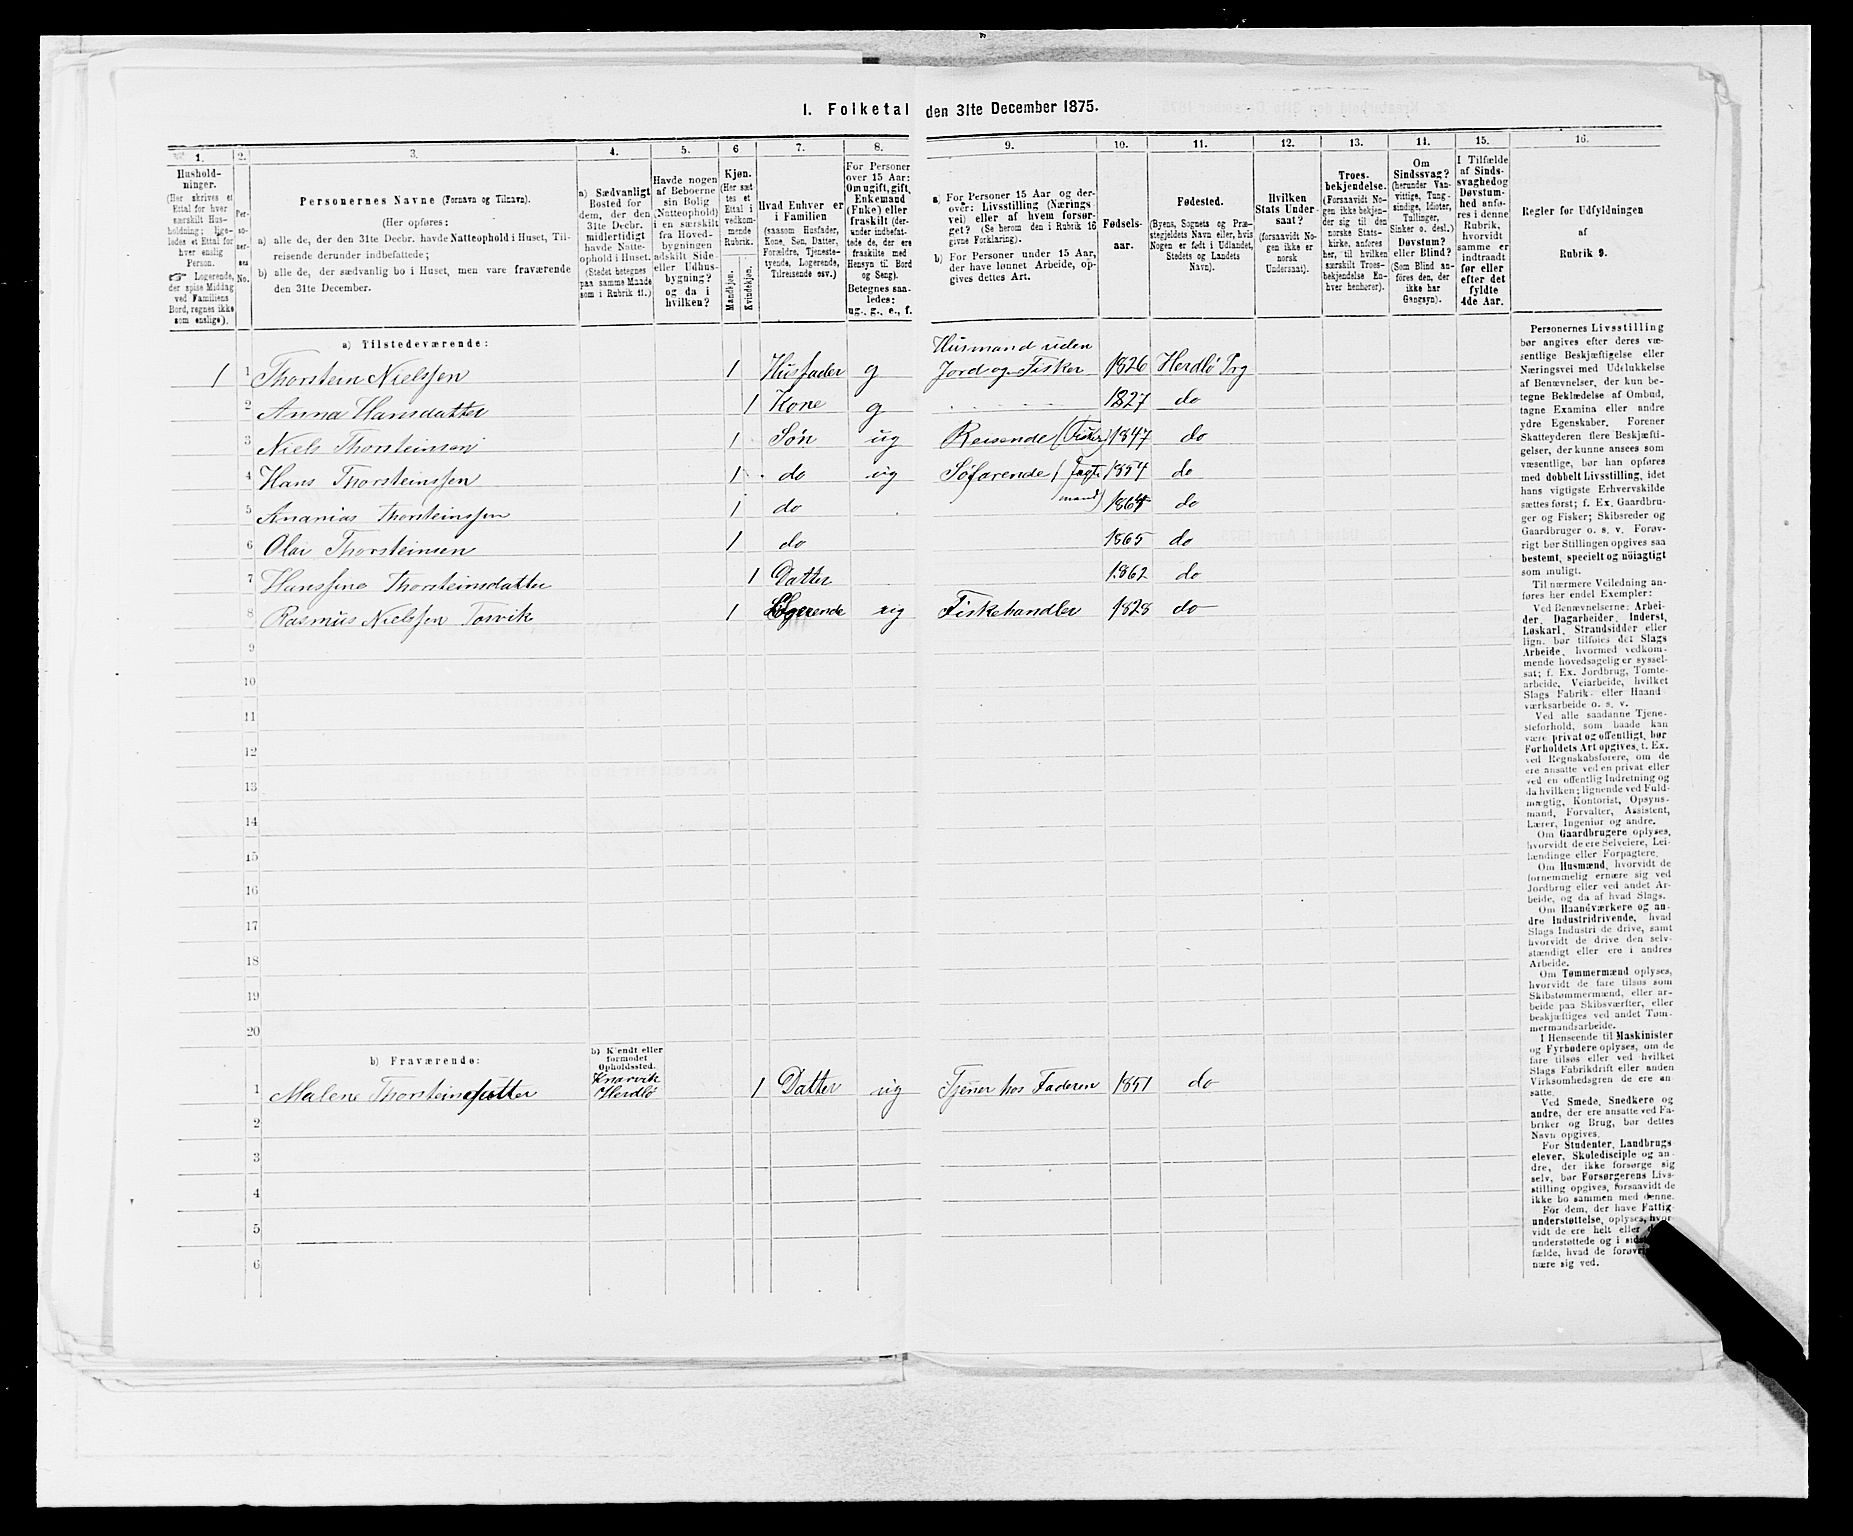 I. Folketal den 31te December 1875.
1.
2.
3.
4.
5.
6
7.
8.
9.
10.
11.
12.
13.
14.
15.
16.
Husholdninger.
(Her skrives et Ettal for hver særskilt Husholdning; ligeledes et Ettal for hver enslig Person.
☞ Logerende, der spise Middag ved Familiens Bord, regnes ikke som enslige).
Personernes No.
Personernes Navne (Fornavn og Tilnavn).
(Her opføres:
a) alle de, der den 31te Decbr. havde Natteophold i Huset, Tilreisende derunder indbefattede;
b) alle de, der sædvanlig bo i Huset, men vare fraværende den 31te December.
a) Sædvanligt Bosted for dem, der den 31te Decbr. midlertidigt havde Natteophold i Huset.
(Stedet betegnes paa samme Maade som i Rubrik 11.)
Havde nogen af Beboerne sin Bolig (Natteophold) i en særskilt fra Hovedbygningen adskilt Side- eller Udhusbygning? og da i hvilken?
Kjøn.
(Her sættes et Ettal i vedkommende Rubrik.
Mandkjøn.
Kvindekjøn.
Hvad Enhver er i Familien
(saasom Husfader, Kone, Søn, Datter, Forældre, Tjenestetyende, Logerende, Tilreisende osv.)
For Personer over 15 Aar: Om ugift, gift, Enkemand (Enke) eller fraskilt (derunder indbefattede de, der ere fraskilte med Hensyn til Bord og Seng).
Betegnes saaledes: ug., g., e., f.
a) For Personer 15 Aar og derover: Livsstilling (Næringsvei) eller af hvem forsørget? (Se herom den i Rubrik 16 givne Forklaring).
b) For Personer under 15 Aar, der have lønnet Arbeide, opgives dettes Art.
Fødselsaar.
Fødested.
(Byens, Sognets og Præstegjeldets Navn eller, hvis Nogen er født i Udlandet, Stedets og Landets Navn).
Hvilken Stats Undersaat?
(forsaavidt Nogen ikke er norsk Undersaat).
Troesbekjendelse.
(Forsaavidt Nogen ikke bekjender sig til den norske Statskirke, anføres her, til hvilken særskilt Troesbekjendelse Enhver henhører).
Om Sindssvag?
(herunder Vanvittige, Tungsindige, Idioter, Tullinger, Sinker o. desl.)
Døvstum? eller Blind?
(Som Blind anføres den, der ikke har Gangsyn).
I Tilfælde af Sindssvaghed og Døvstumhed anføres i denne Rubrik, hvorvidt samme er indtraadt før eller efter det fyldte 4de Aar.
Regler for Udfyldningen
af
Rubrik 9.
a) Tilstedeværende:
1 1 Thorstein Nielssen 1 Husfader g Husmand uden Jord og Fisker 1826 Herdlö Prg
2 Anna Hansdatter 1 Kone g 1827 do
3 Niels Thorsteinsen 1 Søn ug Reisende (Fisker) 1847 do
4 Hans Thorsteinssen 1 do ug Söfarende (Jagtmand) 1854 do
5 Ananias Thorsteinssen 1 do 1864 do
6 Olai Thorsteinsen 1 do 1865 do
7 Hanssine Thorsteinsdatter 1 Datter 1862 do
8 Rasmus Nielssen Torvik 1 Logerende ug Fiskehandler 1828 do
9
10
11
12
13
14
15
16
17
18
19
20
b) Fraværende:
b) Kjendt eller formodet Opholdssted.
1 Malene Thorsteinsdatter Knarvik Herdlö 1 Datter ug Tjener hos Faderen 1851 do
2
3
4
5
6
Personernes Livsstilling
bør angives efter deres væ-
sentlige Beskjæftigelse eller
Næringsvei med Udelukkelse
af Benævnelser, der kun be-
tegne Beklædelse af Ombud,
tagne Examina eller andre
ydre Egenskaber. Forener
Skatteyderen flere Beskjæfti-
gelser, der kunne ansees som
væsentlige, bør han opføres
med dobbelt Livsstilling, idet
hans vigtigste Erhvervskilde
sættes først; f. Ex. Gaardbru-
ger og Fisker; Skibsreder og
Gaardbruger o. s. v. Forøv-
rigt bør Stillingen opgives saa
bestemt, specielt og nöiagtigt
som muligt.
Til nærmere Veiledning an-
føres her endel Exempler:
Ved Benævnelserne: Arbei-
der, Dagarbeider, Inderst,
Løskarl, Strandsidder eller
lign. bør tilføies det Slags
Arbeide, hvormed vedkom-
mende hovedsagelig er syssel-
sat; f. Ex. Jordbrug, Tomte-
arbeide, Veiarbeide, hvilket
Slags Fabrik- eller Haand-
værksarbeide o. s. v.
Ved alle saadanne Tjene-
steforhold, som baade kan
være privat og offentligt, bør
Forholdets Art opgives, f. Ex.
ved Regnskabsførere, om de
ere ansatte ved en privat eller
ved en offentlig Indretning og
da hvilken; lignende ved Fuld-
mægtig, Kontorist, Opsyns-
mand, Forvalter, Assistent,
Lærer, Ingeniør og andre.
Om Gaardbrugere oplyses,
hvorvidt de ere Selveiere, Lei-
lændinge eller Forpagtere.
Om Husmænd, hvorvidt de
fornemmelig ernære sig ved
Jordbrug eller ved andet Ar-
beide, og da af hvad Slags.
Om Haandværkere og an-
dre Industridrivende, hvad
Slags Industri de drive, samt
hvorvidt de drive den selv-
stændigt eller ere i andres
Arbeide.
Om Tømmermænd oplyses,
hvorvidt de fare tilsøs som
Skibstømmermænd, eller ar-
beide paa Skibsværfter, eller
beskjæftiges ved andet Tøm-
mermandsarbeide.
I Henseende til Maskinister
og Fyrbødere oplyses, om de
fare tilsøs eller ved hvilket
Slags Fabrikdrift eller anden
Virksomhedsgren de ere an-
satte.
Ved Smede, Snedkere og
andre, der ere ansatte ved Fa-
briker og Brug, bør dettes
Navn opgives.
For Studenter, Landbrugs-
elever, Skoledisciple og an-
dre, der ikke forsørge sig
selv, bør Forsørgerens Livs-
stilling opgives, forsaavidt de
ikke bo sammen med denne.
For dem, der have Fattig-
understøttelse, oplyses, hvor-
vidt de ere helt eller
understøttede og i
fælde, hvad de
nære sig ved.